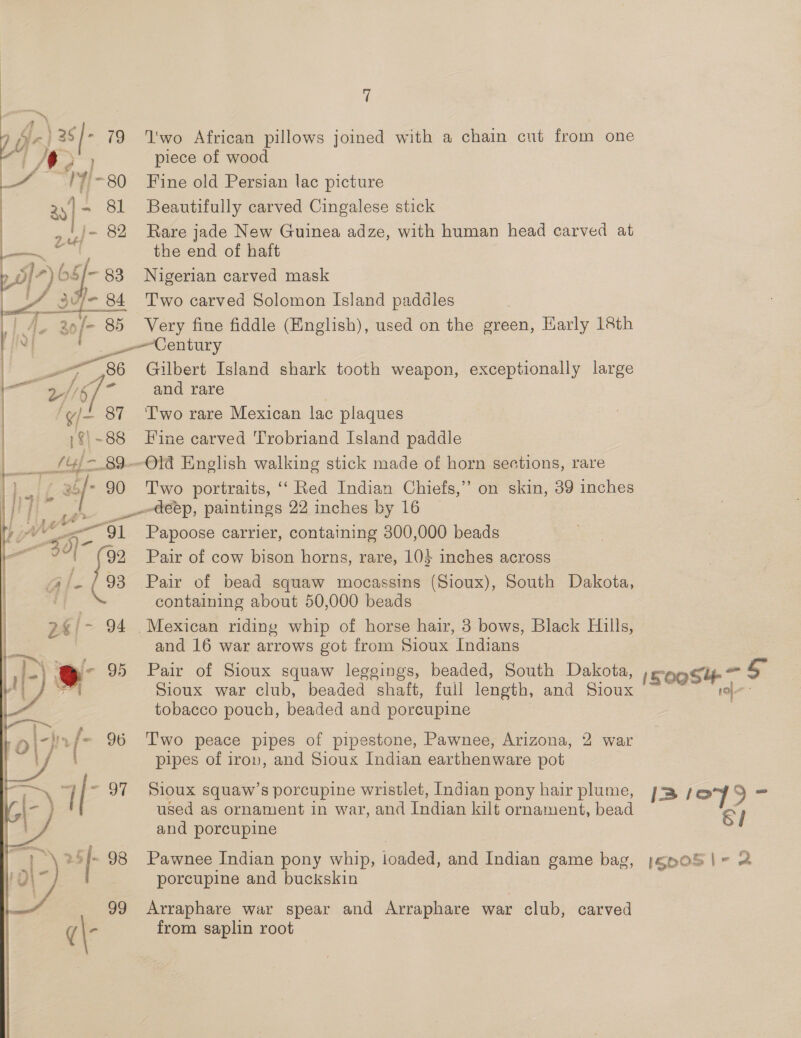 7
35/- 79 Two African pillows joined with a chain cut from one
piece of wood
17/- 80 Fine old Persian lac picture
25/- 81 Beautifully carved Cingalese stick
24/- 82 Rare jade New Guinea adze, with human head carved at
the end of haft
65/- 83 Nigerian carved mask
30/- 84 Two carved Solomon Island paddles
20/- 85 Very fine fiddle (English), used on the green, Early 18th
Century
86 Gilbert Island shark tooth weapon, exceptionally large
and rare
87 Two rare Mexican lac plaques
88 Fine carved Trobriand Island paddle
89 Old English walking stick made of horn sections, rare
90 Two portraits, “ Red Indian Chiefs,” on skin, 39 inches
deep, paintings 22 inches by 16
91 Papoose carrier, containing 300,000 beads
92 Pair of cow bison horns, rare, 10½ inches across
93 Pair of bead squaw mocassins (Sioux), South Dakota,
containing about 50,000 beads
94 Mexican riding whip of horse hair, 3 bows, Black Hills,
and 16 war arrows got from Sioux Indians
95 Pair of Sioux squaw leggings, beaded, South Dakota, 150054 - 5
Sioux war club, beaded shaft, full length, and Sioux 10/-
tobacco pouch, beaded and porcupine
96 Two peace pipes of pipestone, Pawnee, Arizona, 2 war
pipes of iron, and Sioux Indian earthenware pot
7/- 97 Sioux squaw’s porcupine wristlet, Indian pony hair plume, 131079 -
used as ornament in war, and Indian kilt ornament, bead 81
and porcupine
25/- 98 Pawnee Indian pony whip, loaded, and Indian game bag, 150051 - 2
porcupine and buckskin
99 Arraphare war spear and Arraphare war club, carved
from saplin root